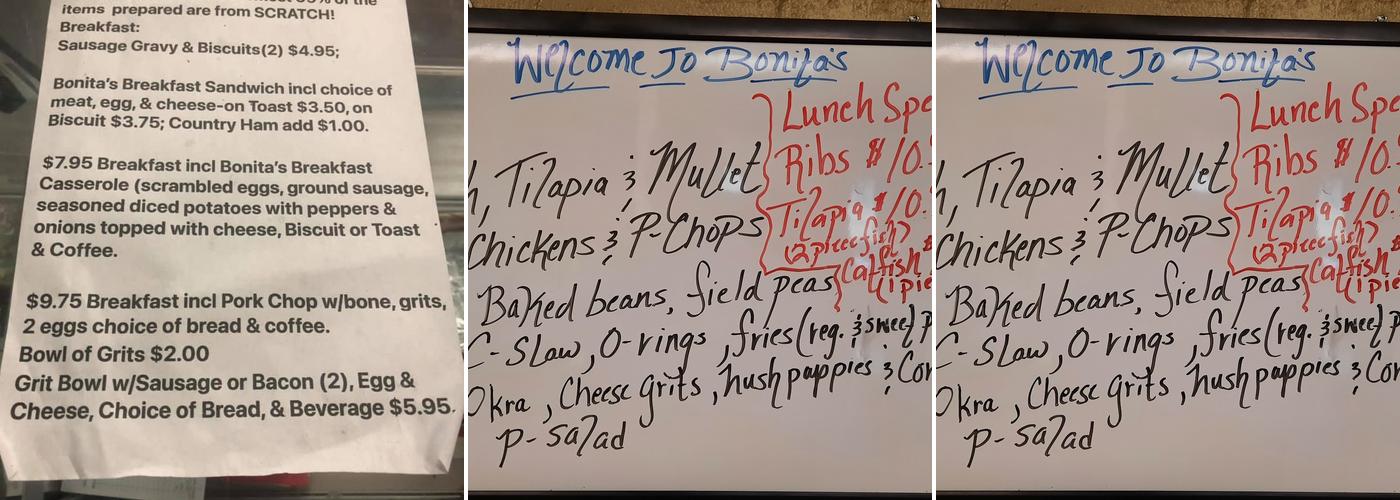 items prepared are from SCRATCH!
Breakfast:
Sausage Gravy & Biscuits(2) $4.95;
Bonita's Breakfast Sandwich incl choice of
meat, egg, & cheese-on Toast $3.50, on
Biscuit $3.75; Country Ham add $1.00.
$7.95 Breakfast incl Bonita's Breakfast
Casserole (scrambled eggs, ground sausage,
seasoned diced potatoes with peppers &
onions topped with cheese, Biscuit or Toast
& Coffee.
$9.75 Breakfast incl Pork Chop w/bone, grits,
2 eggs choice of bread & coffee.
Bowl of Grits $2.00
Grit Bowl w/Sausage or Bacon (2), Egg &
Cheese, Choice of Bread, & Beverage $5.95.
Welcome To Bonita's
Lunch Spe
Ribs $10.
Tilapia $10.
(2 piece fish)
Catfish
(1 pie
h, Tilapia & Mullet
Chickens & P-Chops
Baked beans, field peas
C-Slaw, O-rings, fries (reg. & sweet P
Okra, Cheese grits, hushpuppies & Cor
P-Salad
Welcome To Bonita's
Lunch Spe
Ribs $10.
Tilapia $10.
(2 piece fish)
Catfish
(1 pie
h, Tilapia & Mullet
Chickens & P-Chops
Baked beans, field peas
C-Slaw, O-rings, fries (reg. & sweet P
Okra, Cheese grits, hushpuppies & Cor
P-Salad